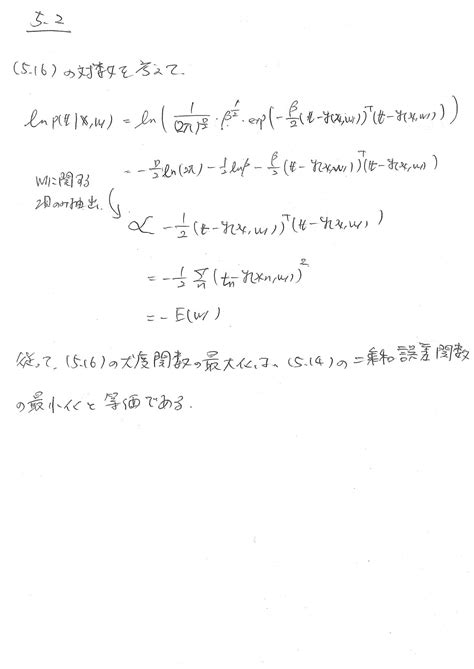 5.2
(5.16)の対数を考えて.
ln p(t|x,w) = ln( 1/(2π)^{D/2} · β^{1/2} · exp(-β/2 (t-y(x,w))^T (t-y(x,w))) )
= -D/2 ln(2π) - 1/2 lnβ - β/2 (t-y(x,w))^T (t-y(x,w))
wに関する
項のみ抽出.
∝ -1/2 (t-y(x,w))^T (t-y(x,w))
= -1/2 Σ_n (t_n-y(x_n,w))^2
= -E(w)
従って, (5.16)の尤度関数の最大化は、(5.14)の二乗和誤差関数
の最小化と等価である.